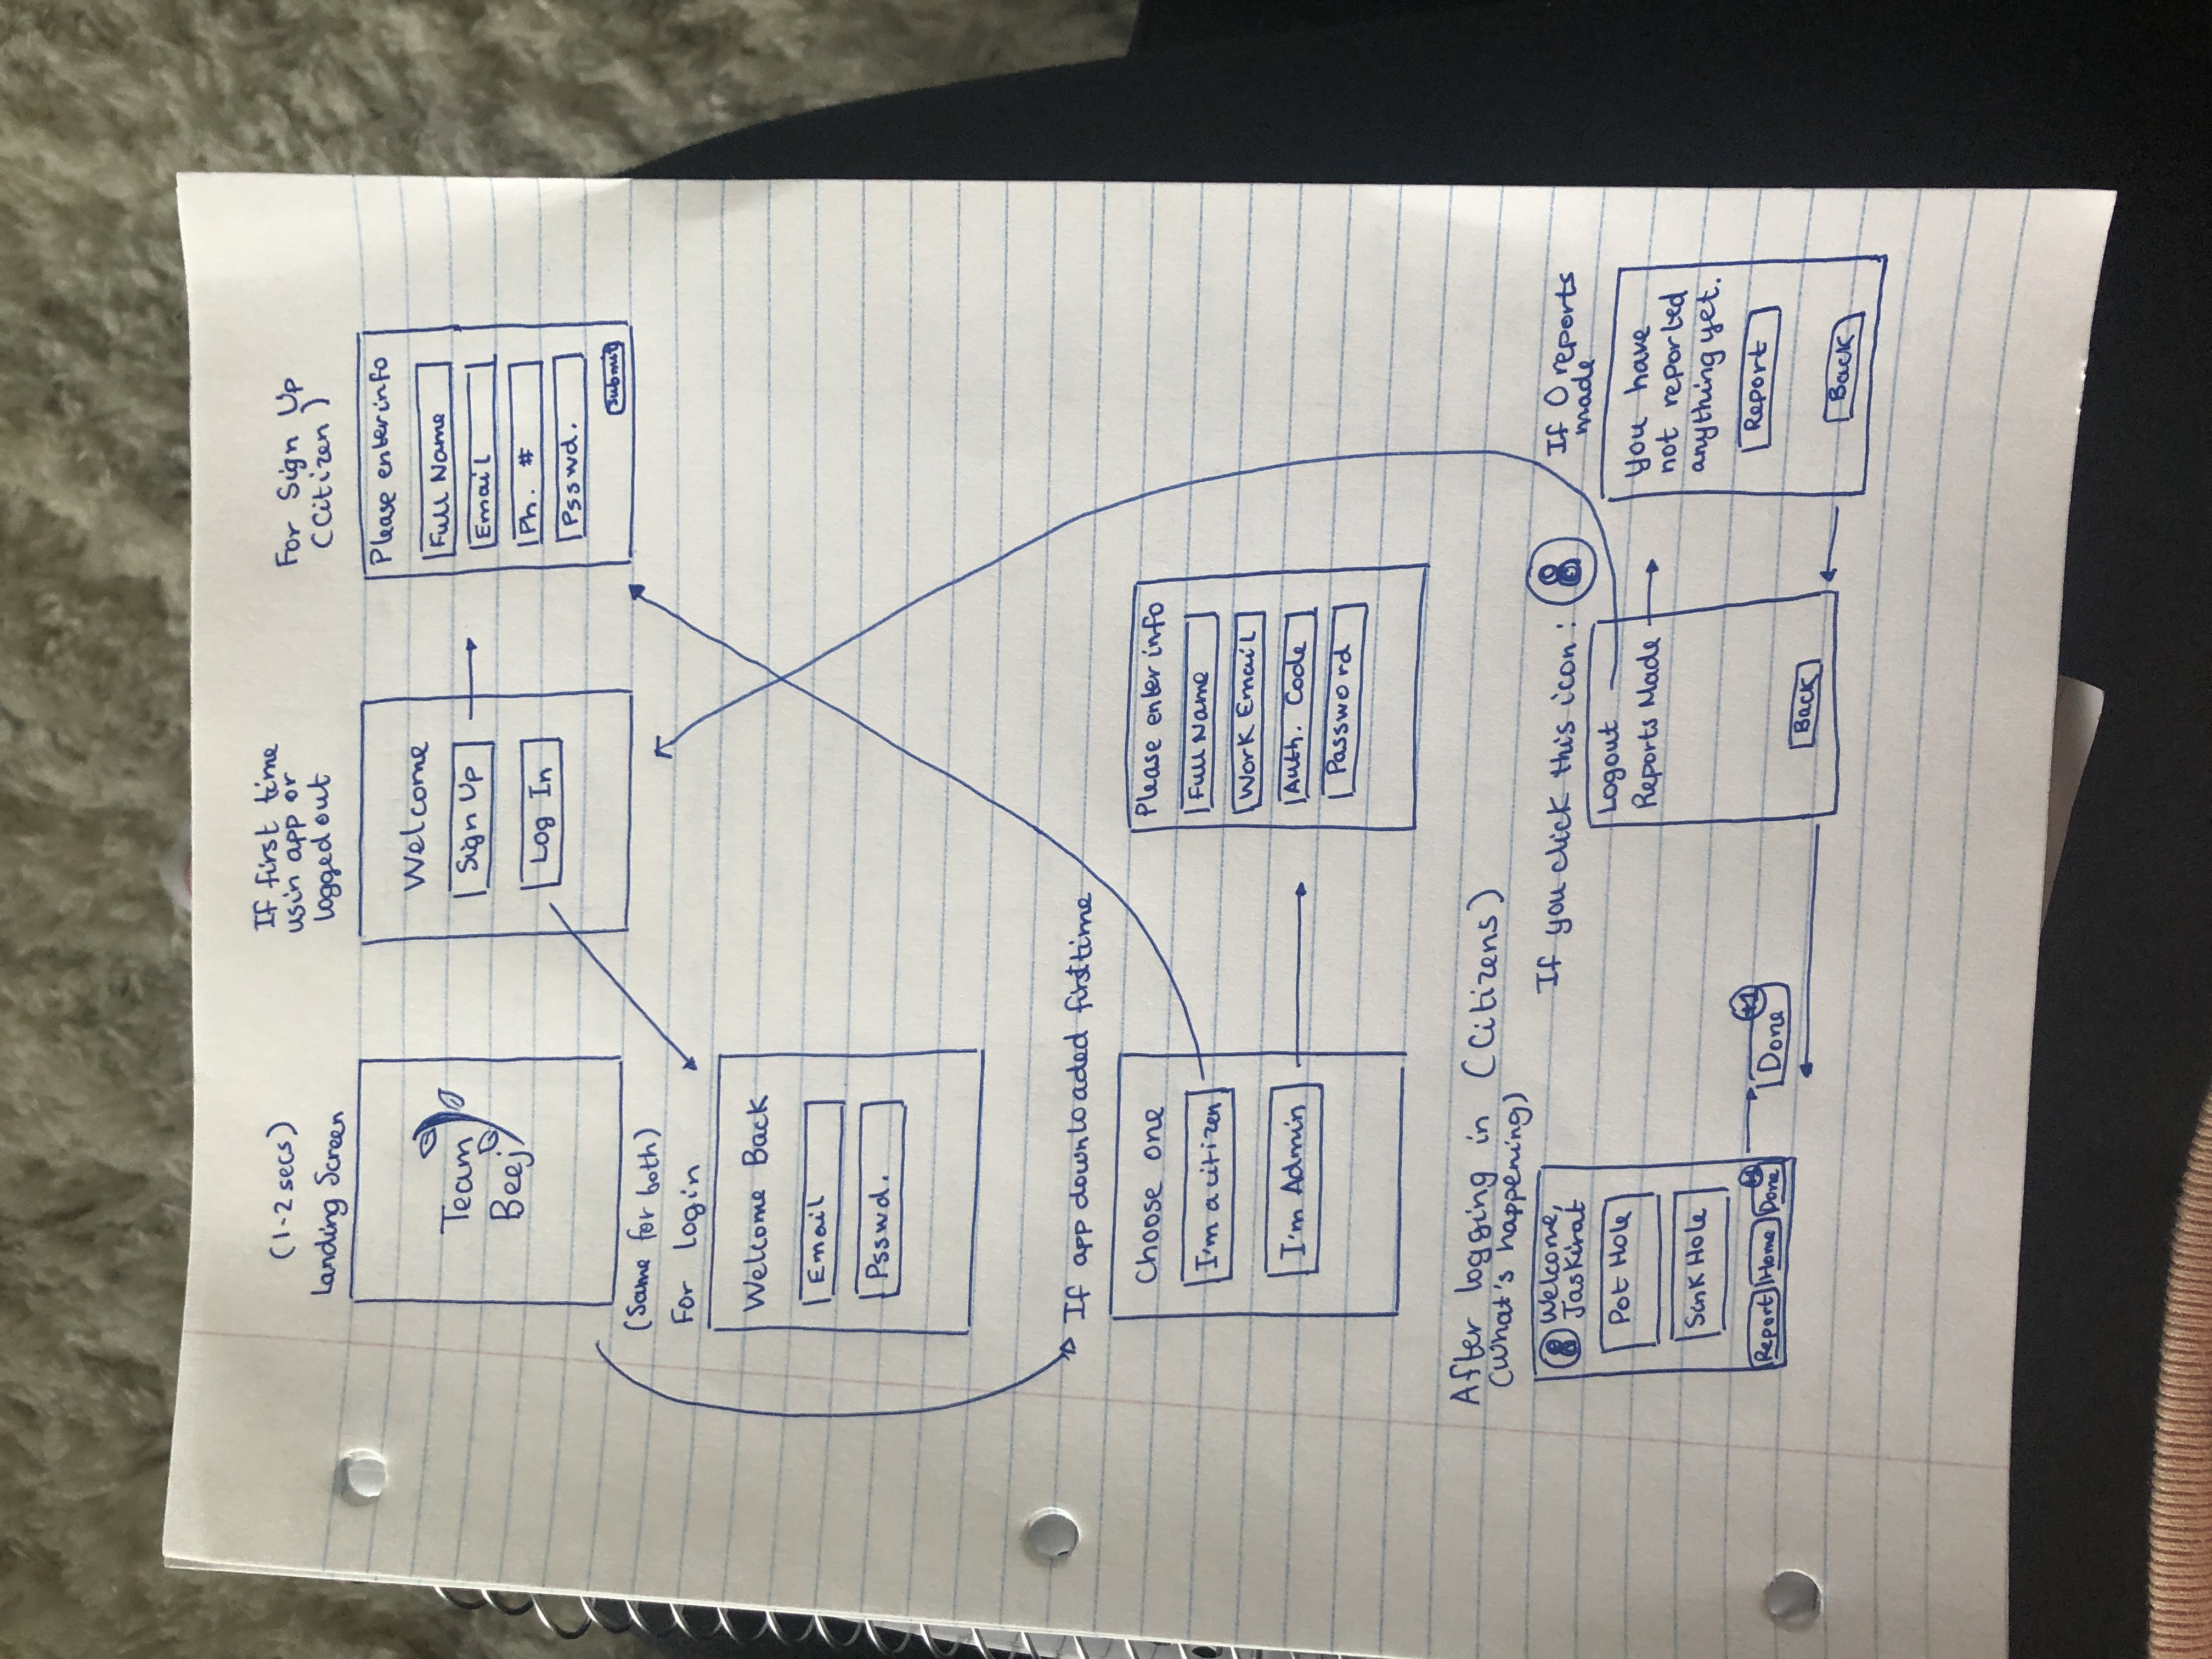 (1-2 secs)
Landing Screen
Team
Beej
If first time
usin app or
logged out
Welcome
Sign Up
Log In
For Sign Up
(Citizen)
Please enter info
Full Name
Email
Ph. #
Psswd.
Submit
(Same for both)
For login
Welcome Back
Email
Psswd.
If app downloaded first time
Choose one
I'm a citizen
I'm Admin
Please enter info
Full Name
Work Email
Auth. Code
Password
After logging in (Citizens)
(What's happening)
Welcome,
Jaskirat
Pot Hole
Sink Hole
Report Home Done
Done
+1
If you click this icon:
Logout
Reports Made
Back
If 0 reports
made
You have
not reported
anything yet.
Report
Back